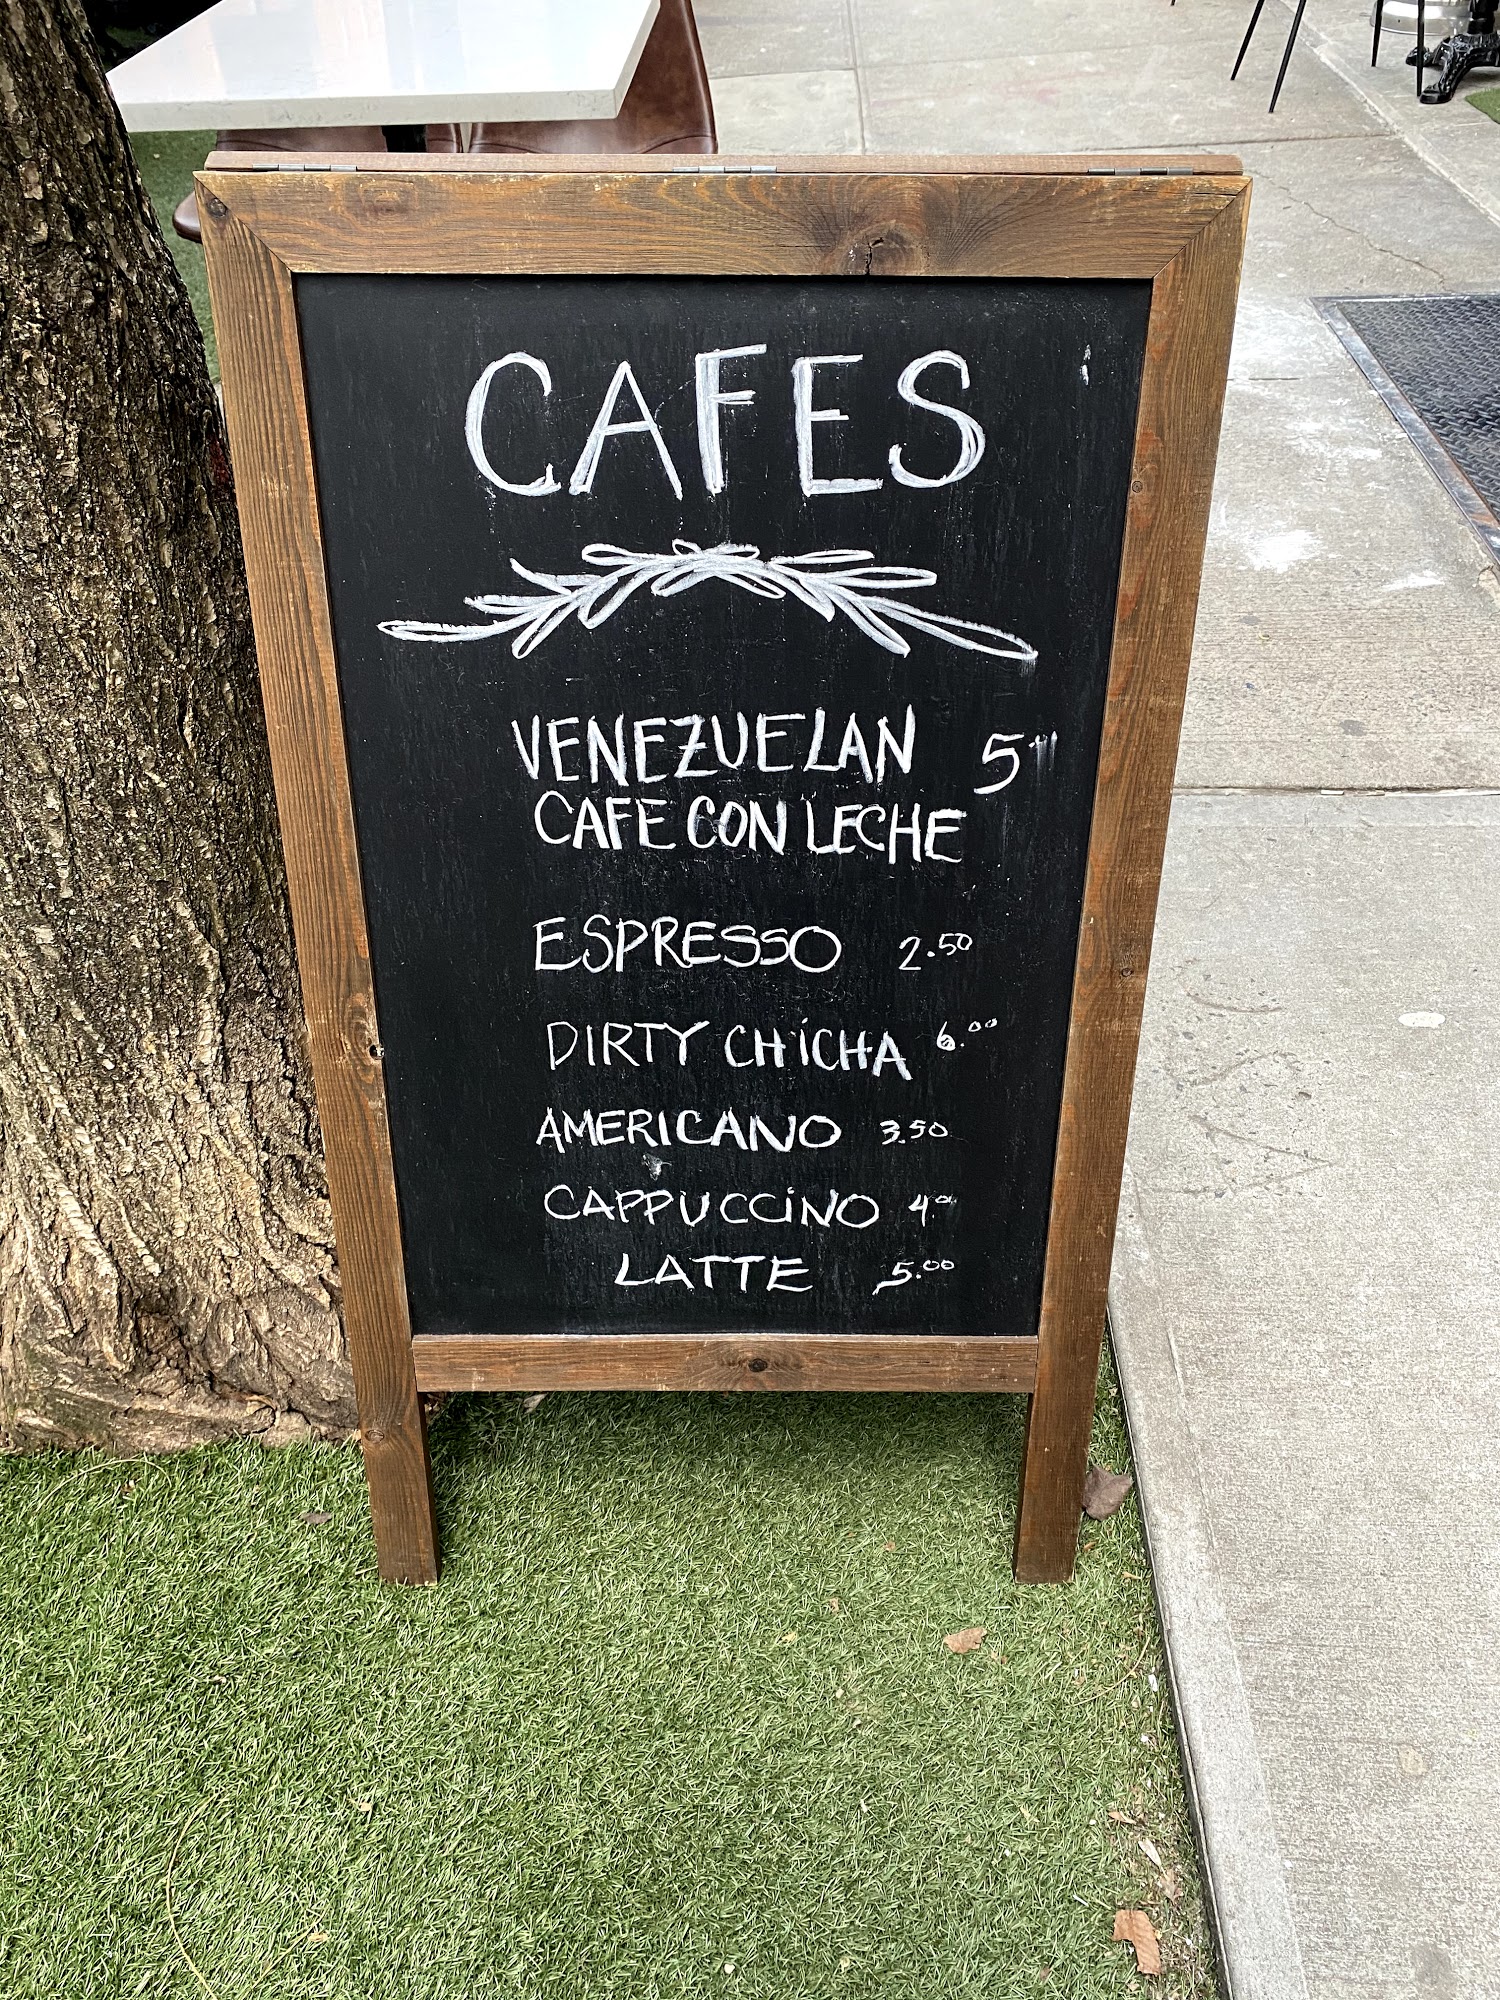 CAFES
VENEZUELAN 5
CAFE CON LECHE
ESPRESSO 2.50
DIRTY CHiCHA 6.00
AMERICANO 3.50
CAPPUCCiNO 4.00
LATTE 5.00